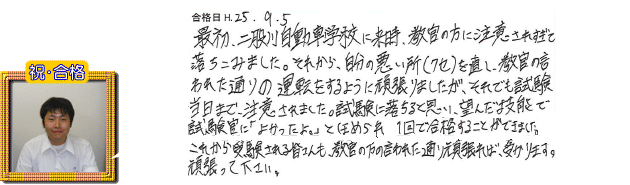 合格日 H.25.9.5
最初、二俣川自動車学校に来時、教官の方に注意されすぎて
落ちこみました。それから、自分の悪い所(クセ)を直し、教官の言
われた通りの運転をするように頑張りましたが、それでも試験
当日まで注意されました。試験に落ちると思い、望んだ技能で
試験官に「よかったよ。」とほめられ 1回で合格することができました。
これから受験される皆さんも、教官の方の言われた通り頑張れば、受かります。
頑張って下さい。
祝・合格